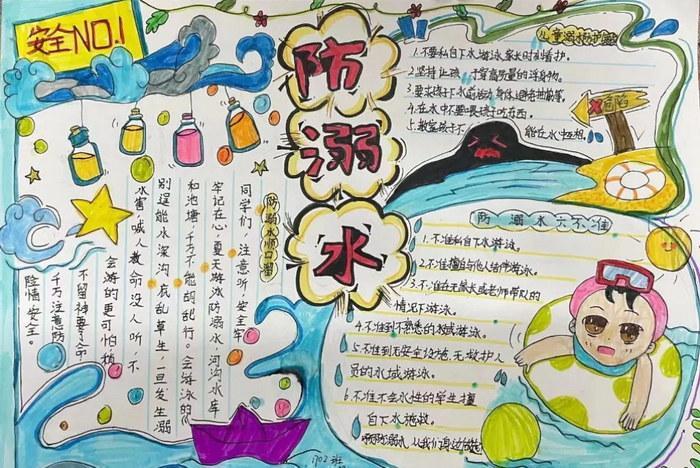 安全NO.1
防溺水
儿童溺水防护措施
1.不要私自下水游泳,家长时刻看护。
2.坚持让孩子穿高质量的浮身物。
3.要求孩子下水前活动身体,避免抽筋等。
4.在水中不要喂孩子吃东西。
5.教育孩子不
能在水中互相
危险
防溺水顺口溜
同学们,注意听,安全牢
牢记在心,夏天游泳防溺水,河沟水库
和池塘,千万不能胡乱行。会游泳的
别逞能,水深沟底乱草生,一旦发生溺
水害,喊人救命没人听,不
会游的更可怕,稍
不留神要了命,
千万注意防
险情安全。
防溺水六不准
1.不准私自下水游泳。
2.不准擅自与他人结伴游泳。
3.不准在无家长或老师带队的
情况下游泳。
4.不准到不熟悉的水域游泳。
5.不准到无安全设施、无救护人
员的水域游泳。
6.不准不会水性的学生擅
自下水施救。
预防溺水,从我们身边做起
702班